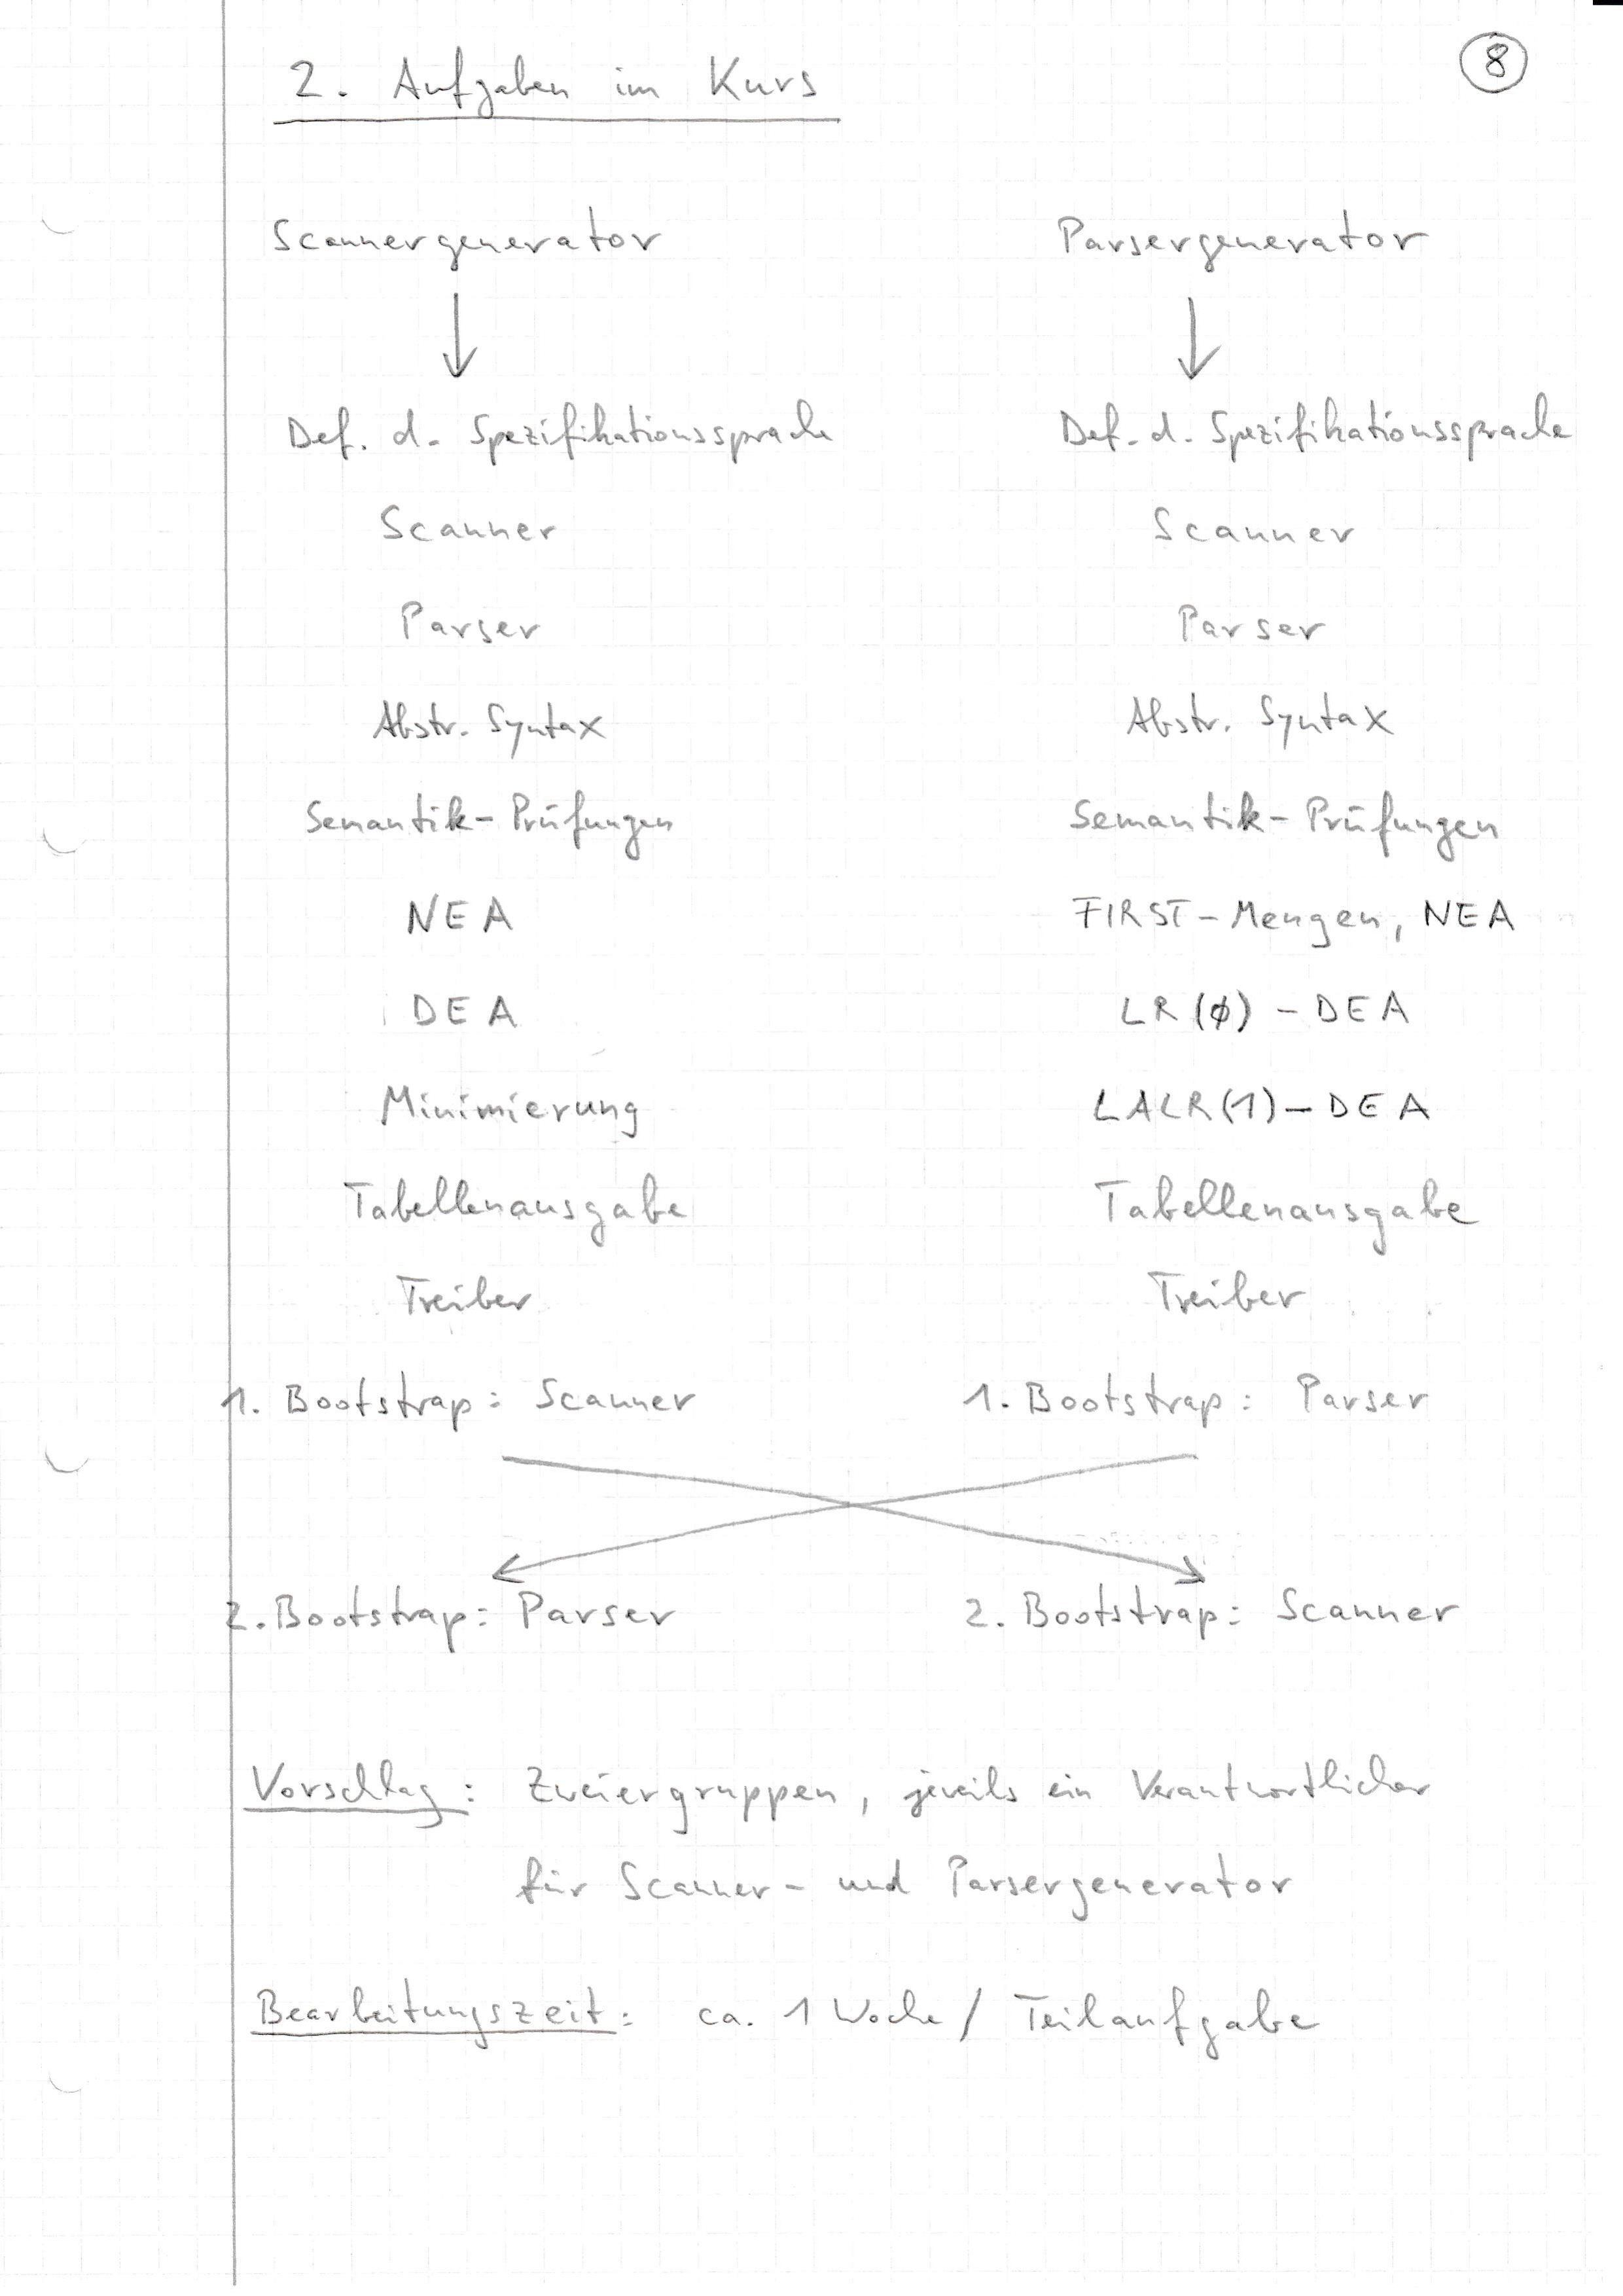 8
2. Aufgaben im Kurs
Scannergenerator Parsergenerator
Def. d. Spezifikationssprache Def. d. Spezifikationssprache
Scanner Scanner
Parser Parser
Abstr. Syntax Abstr. Syntax
Semantik-Prüfungen Semantik-Prüfungen
NEA FIRST-Mengen, NEA
DEA LR(0)-DEA
Minimierung LALR(1)-DEA
Tabellenausgabe Tabellenausgabe
Treiber Treiber
1. Bootstrap: Scanner 1. Bootstrap: Parser
2. Bootstrap: Parser 2. Bootstrap: Scanner
Vorschlag: Zweiergruppen, jeweils ein Verantwortlicher
für Scanner- und Parsergenerator
Bearbeitungszeit: ca. 1 Woche / Teilaufgabe